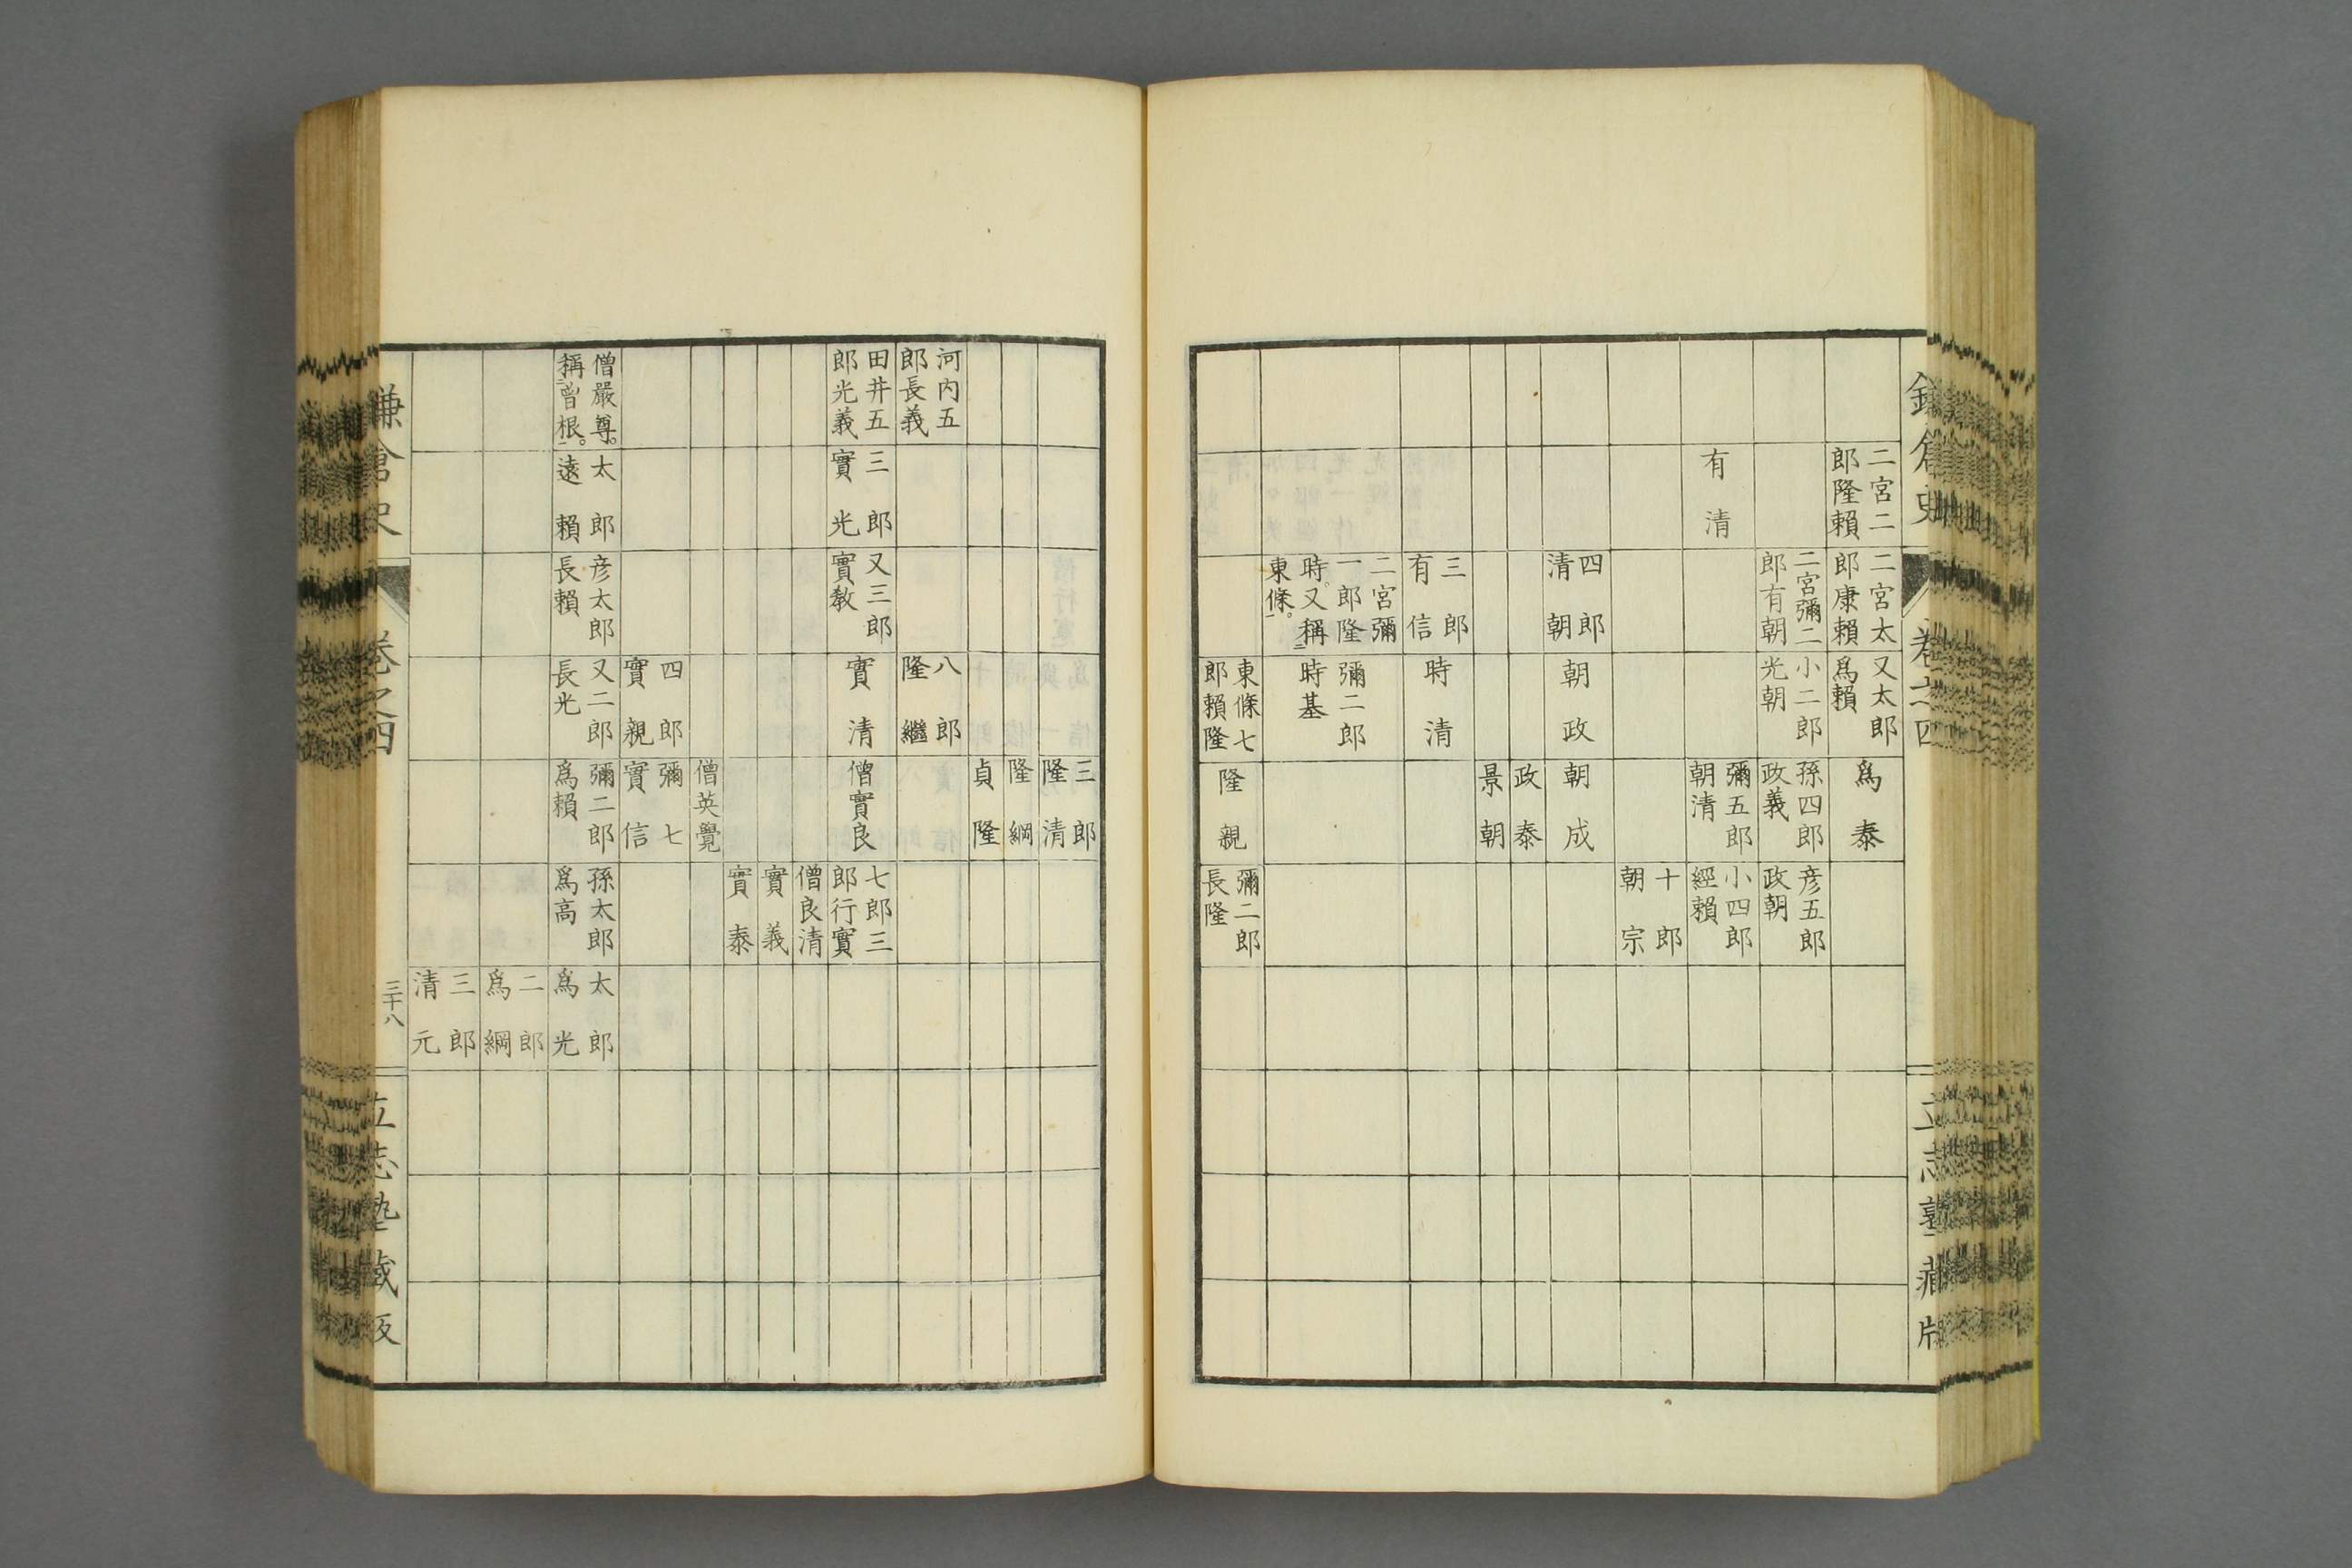 鎌倉史
卷之四
立志塾藏版
二宮二郎隆賴
二宮太郎康賴
又太郎爲賴
爲泰
二宮彌二郎有朝
小二郎光朝
孫四郎政義
彦五郎政朝
有清
彌五郎朝清
小四郎經賴
十郎朝宗
四郎清朝
朝政
朝成
政泰
景朝
三郎有信
時清
二宮彌一郎隆時。又稱二東條一。
彌二郎時基
東條七郎賴隆
隆親
彌二郎長隆
三郎隆清
隆綱
貞隆
河内五郎長義
八郎隆繼
田井五郎光義
三郎實光
又三郎實教
實清
僧實良
七郎三郎行實
僧良清
實義
實泰
僧英覺
四郎實親
彌七實信
僧嚴尊。稱二曾根一。
太郎遠賴
彦太郎長賴
又二郎長光
彌二郎爲賴
孫太郎爲高
太郎爲光
二郎爲綱
三郎清元
鎌倉史
卷之四
三十八
立志塾藏版